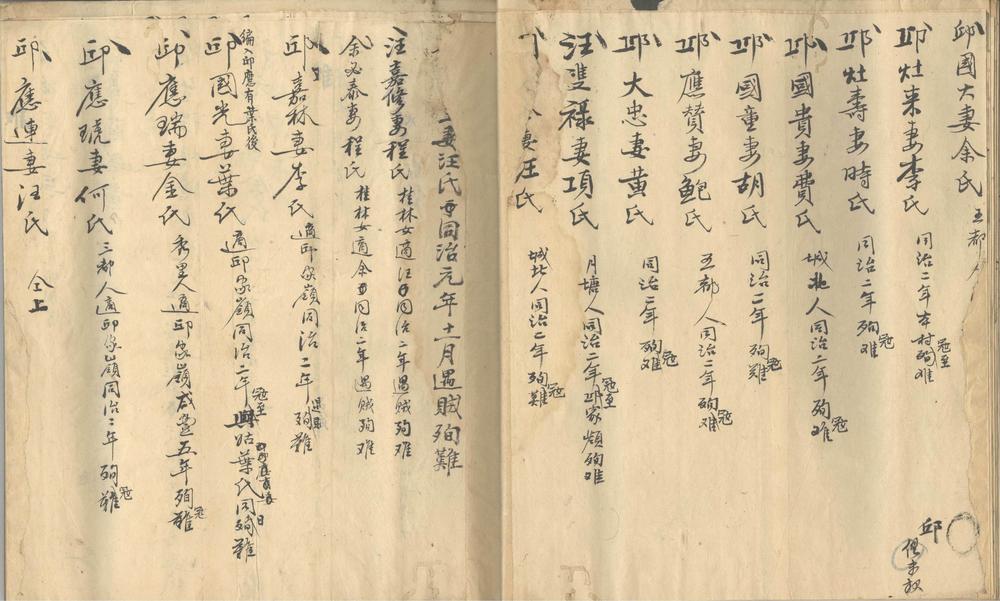 邱國大妻余氏 五都人
邱灶来妻李氏 同治二年寇至本村殉难
邱灶壽妻時氏 同治二年寇殉难
邱國貴妻費氏 城北人同治二年寇殉难
邱國童妻胡氏 同治二年寇殉難
邱應贊妻鮑氏 五都人同治二年寇殉难
邱大忠妻黄氏 同治二年寇殉难
汪雙禄妻項氏 月塘人同治二年寇至邱家嶺殉难
妻汪氏 城北人同治二年寇殉難
邱
妻汪氏 同治元年十一月遇贼殉難
汪嘉修妻程氏 桂林女適汪 同治二年遇贼殉难
余必泰妻程氏 桂林女適余 同治二年遇贼殉难
邱嘉林妻李氏 適邱家嶺同治二年遇贼殉難
編入邱應有葉氏後
邱國光妻葉氏 適邱家嶺同治二年寇至與姑葉氏同日殉難
邱應瑞妻金氏 秀里人適邱家嶺咸豐五年寇殉難
邱應琥妻何氏 三都人適邱家嶺同治二年寇殉難
邱應連妻汪氏 仝上